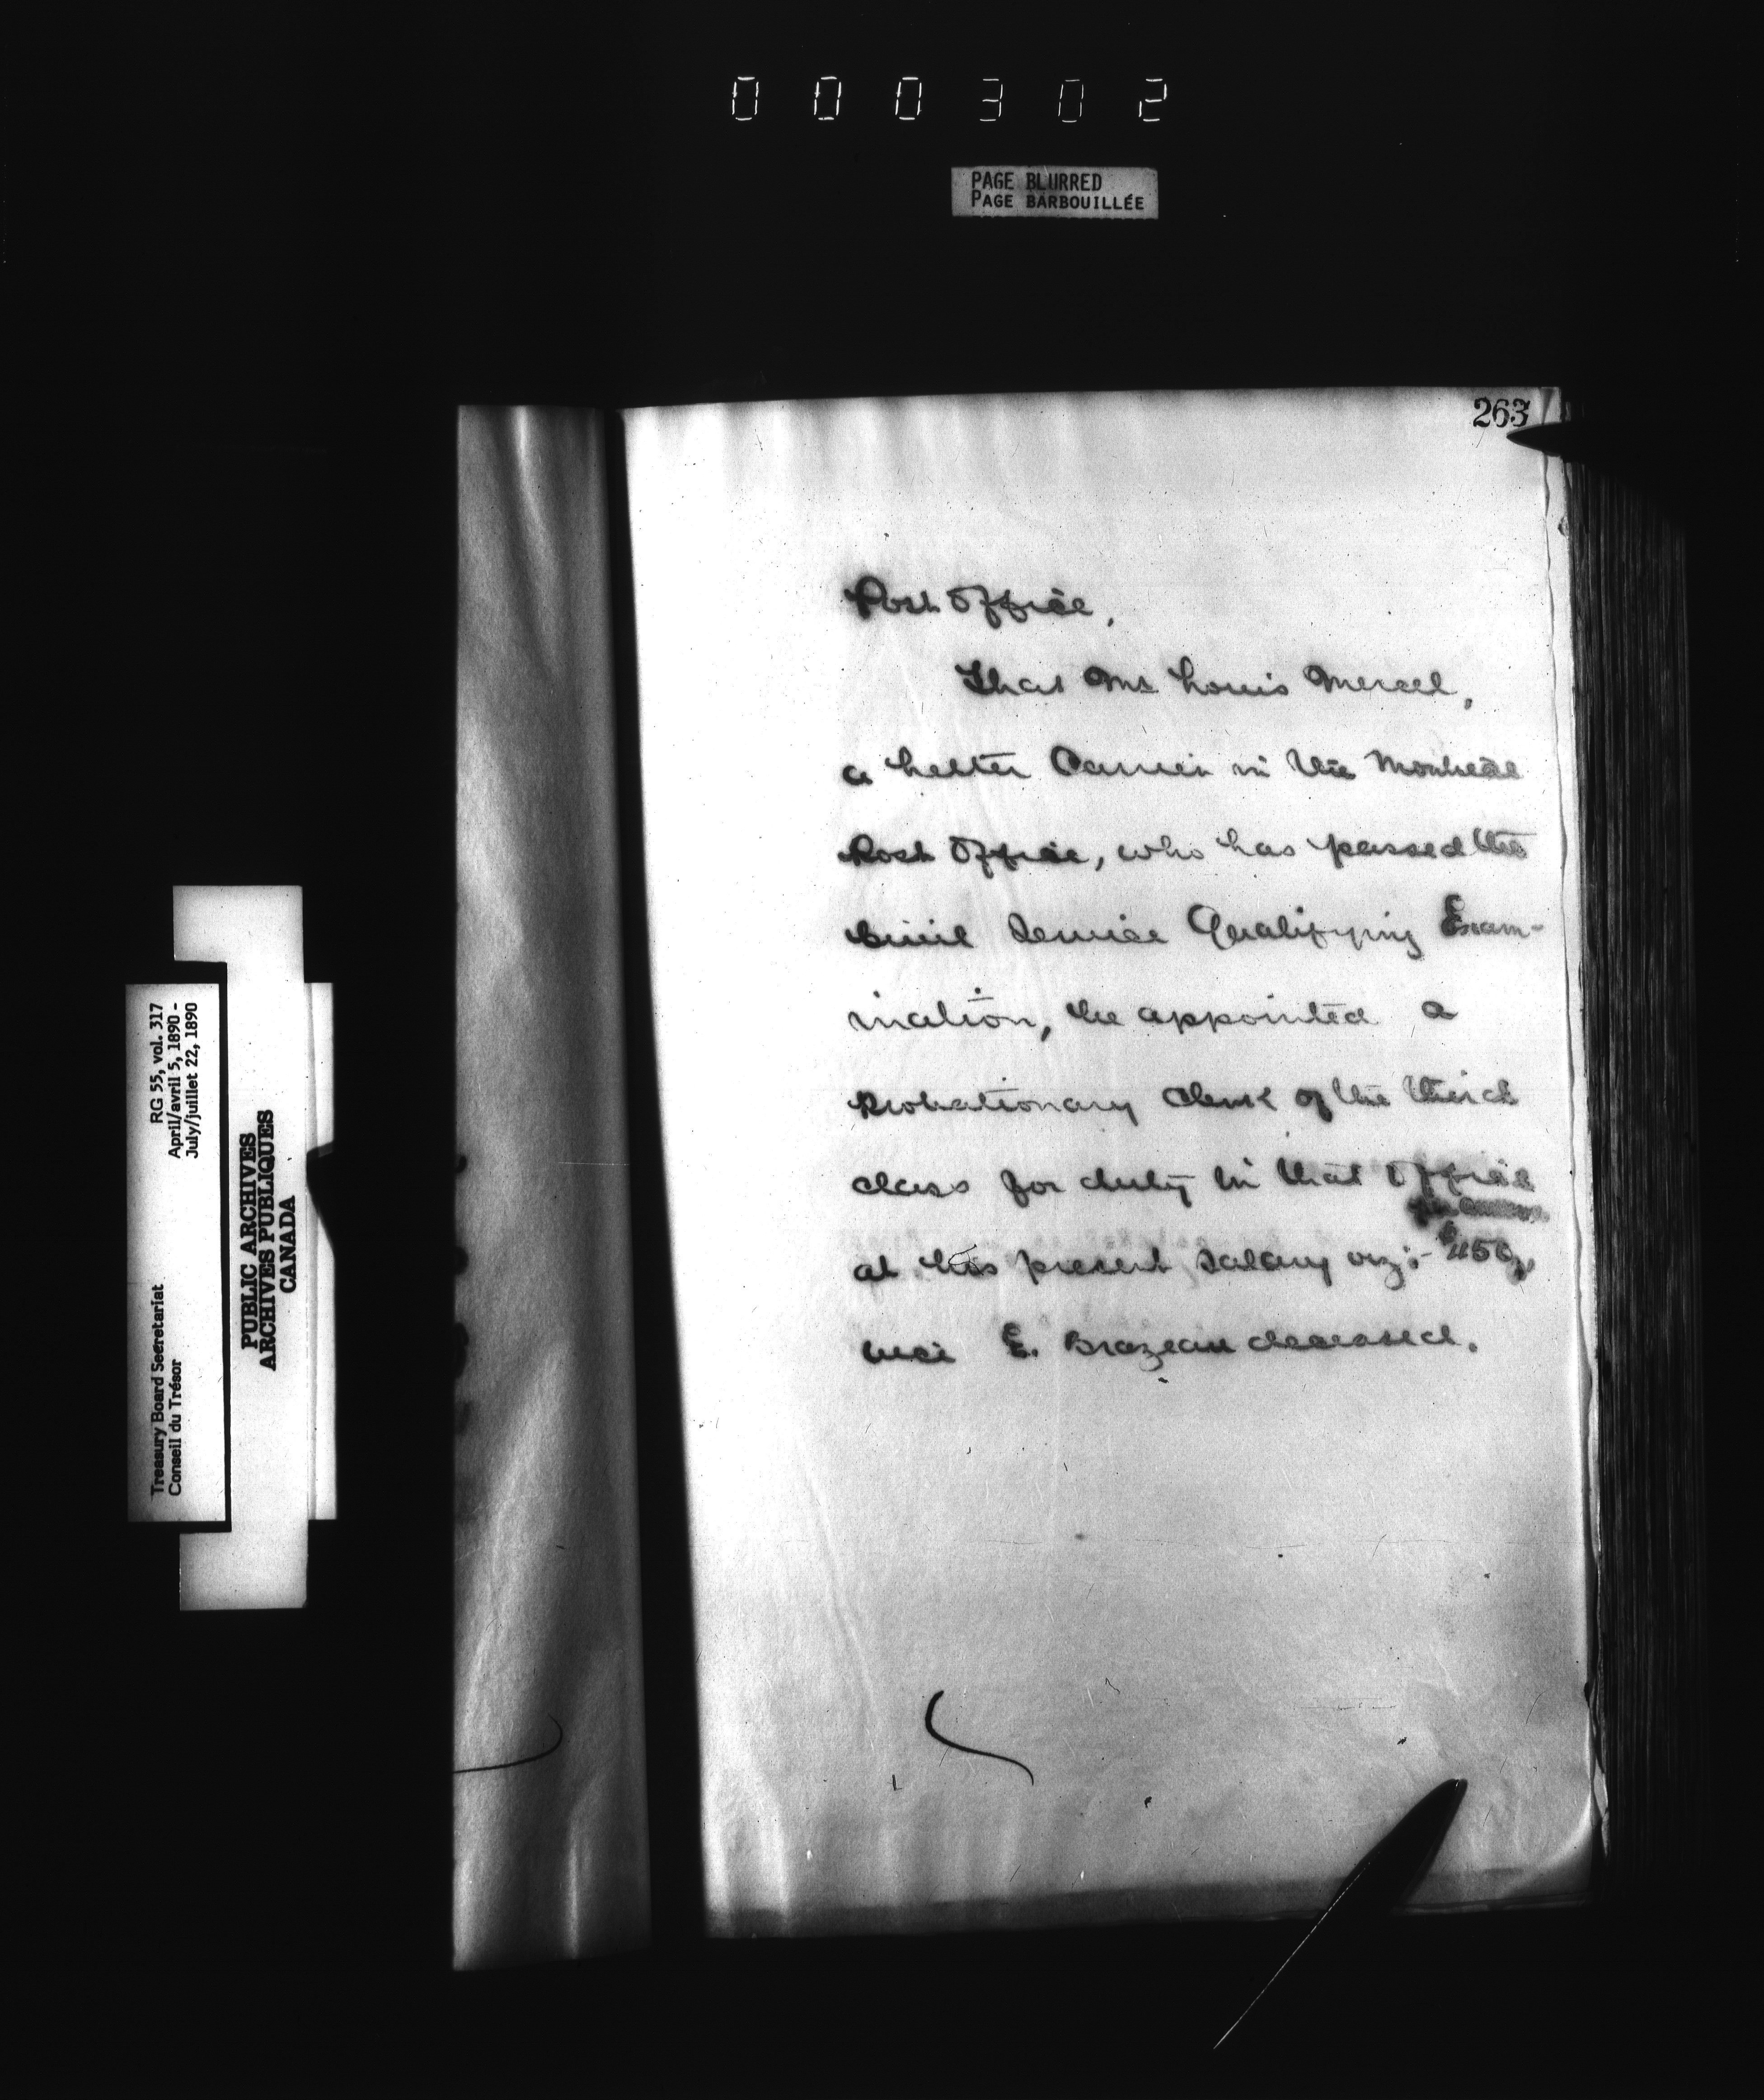 000302
PAGE BLURRED
PAGE BARBOUILLÉE
263
Post Office,
That Mr Louis Mercel,
a Letter Carrier in the Montreal
Post Office, who has passed the
Civil Service Qualifying Exam-
ination, be appointed a
Probationary Clerk of the third
class for duty in that Office
at his present salary viz:- $450,
vice E. Brazeau deceased.
RG 55, vol. 317
April/avril 5, 1890 -
July/juillet 22, 1890
Treasury Board Secretariat
Conseil du Trésor
PUBLIC ARCHIVES
ARCHIVES PUBLIQUES
CANADA